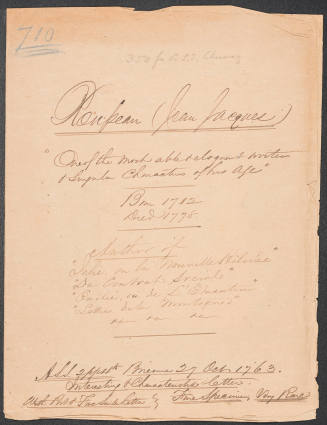 710
Rousseau (Jean Jacques)
"One of the most able & eloquent writers
& Singular Characters of his Age"
Born 1712
Died 1778
Author of
"Julie, ou la Nouvelle Héloise"
"Du Contrat Social"
"Emile, ou de l'Education"
"Lettres de la Montagne"
A.L.S. 2pp 8º 27 Oct. 1763.
Interesting & Characteristic letter.
Fine Specimen, Very Rare